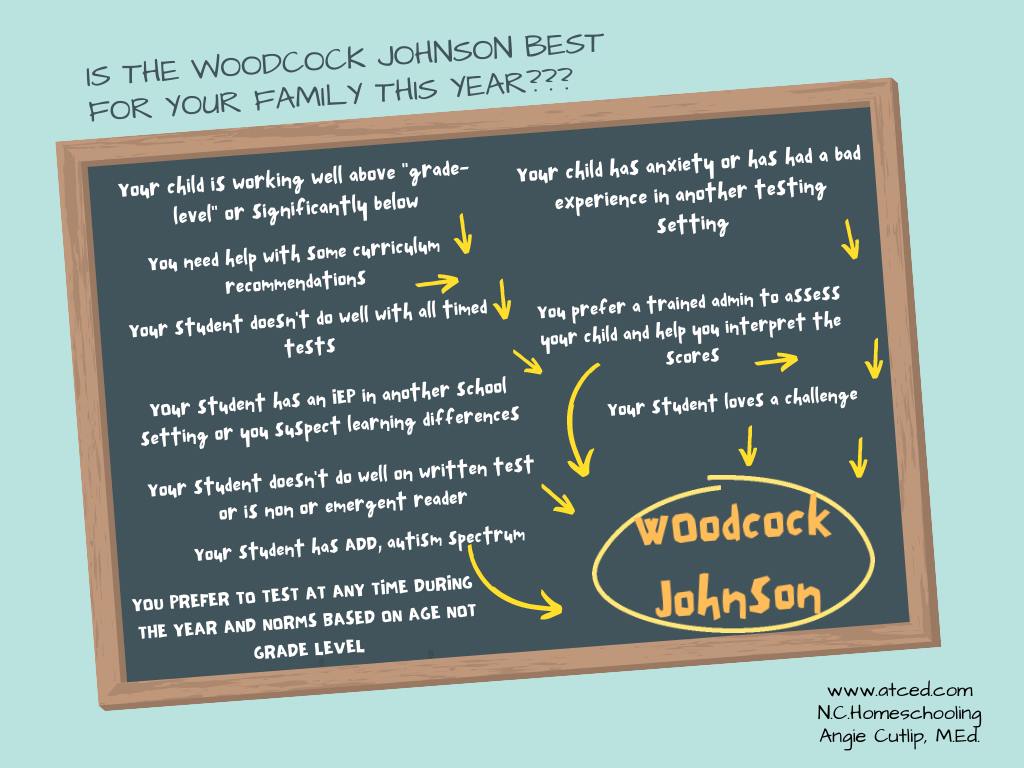 IS THE WOODCOCK JOHNSON BEST
FOR YOUR FAMILY THIS YEAR???
Your child is working well above "grade-
level" or significantly below
You need help with some curriculum
recommendations
Your student doesn't do well with all timed
tests
Your student has an IEP in another school
setting or you suspect learning differences
Your student doesn't do well on written test
or is non or emergent reader
Your student has ADD, autism spectrum
YOU PREFER TO TEST AT ANY TIME DURING
THE YEAR AND NORMS BASED ON AGE NOT
GRADE LEVEL
Your child has anxiety or has had a bad
experience in another testing
setting
You prefer a trained admin to assess
your child and help you interpret the
scores
Your student loves a challenge
Woodcock
Johnson
www.atced.com
N.C.Homeschooling
Angie Cutlip, M.Ed.